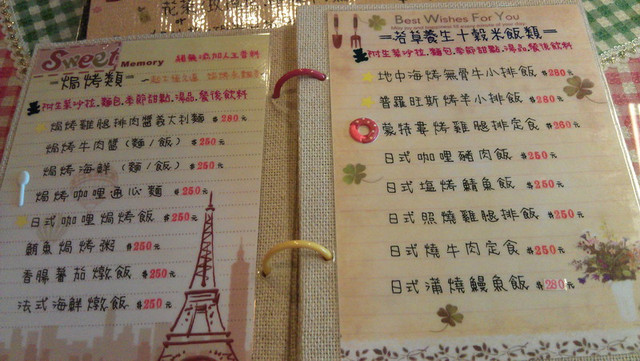 Sweet Memory
＝焗烤類＝
附生菜沙拉、麵包、季節甜點、湯品、餐後飲料
焗烤雞腿排肉醬義大利麵 $280元
焗烤牛肉醬(麵/飯) $250元
焗烤海鮮(麵/飯) $250元
焗烤咖哩通心麵 $250元
日式咖哩焗烤飯 $250元
鯛魚焗烤粥 $250元
香腸蕃茄燉飯 $250元
法式海鮮燉飯 $250元
Best Wishes For You
＝谷草養生十穀米飯類＝
附生菜沙拉、麵包、季節甜點、湯品、餐後飲料
地中海烤無骨牛小排飯 $280元
普羅旺斯烤羊小排飯 $280元
蒙特婁烤雞腿排定食 $260元
日式咖哩豬肉飯 $250元
日式塩烤鯖魚飯 $250元
日式照燒雞腿排飯 $250元
日式燒牛肉定食 $250元
日式蒲燒鰻魚飯 $280元